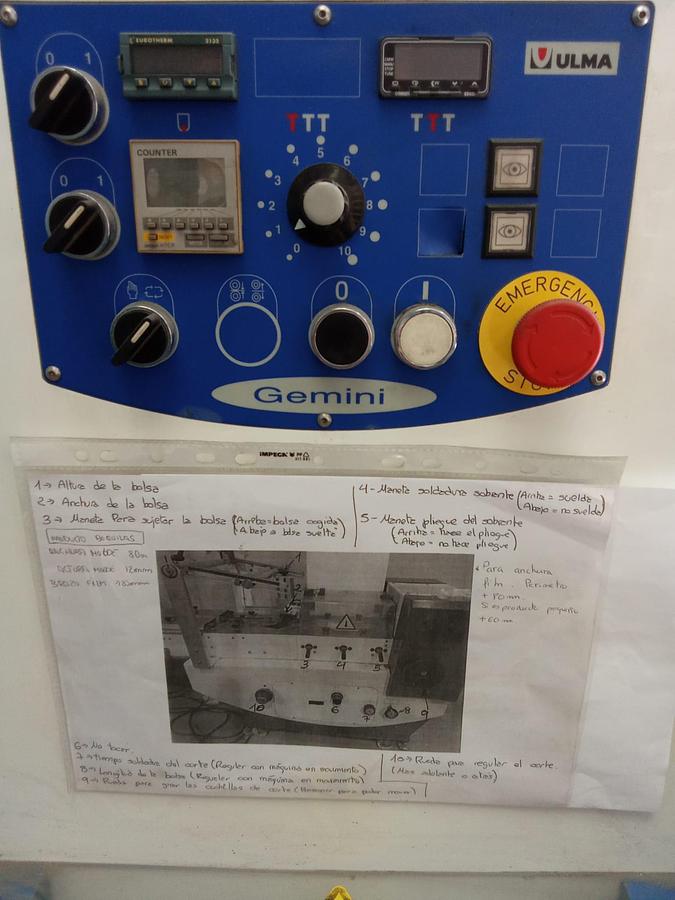 EUROTHERM
ULMA
0 1
COUNTER
TTT
TTT
0 1 2 3 4 5 6 7 8 9 10
RESET
0 1
0
I
EMERGENC
STO
Gemini
IMPEGA
1→ Altura de la bolsa
2→ Anchura de la bolsa
3→ Maneta Para sujetar la bolsa (Arriba=bolsa cogida)
(Abajo=bolsa suelta)
4- Maneta soldadura sobrante (Arriba=suelda)
(Abajo=no suelda)
5- Maneta pliegue del sobrante
(Arriba=hace el pliegue)
(Abajo=no hace pliegue)
PRODUCTO
MOLDE
MOLDE
Para anchura
film. Perimetro
+ 80mm.
Si es producto pequeño
+60 mm
2
3 4 5
10 6 7 8 9
6→ No tocar.
7→ tiempo soldadura del corte (Regular con máquina en movimiento)
8→ Longitud de la bolsa (Regular con máquina en movimiento)
9→ Rueda para girar las cuchillas de corte (para poder mover)
10→ Rueda para regular el corte.
(Mas adelante o atrás)